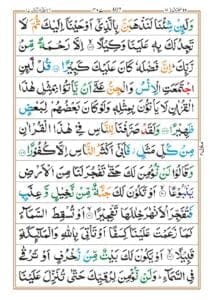 وَلَىِٕنْ شِئْنَا لَنَذْهَبَنَّ بِالَّذِیْۤ اَوْحَیْنَاۤ اِلَیْكَ ثُمَّ لَا
تَجِدُ لَكَ بِهٖ عَلَیْنَا وَكِیْلًا اِلَّا رَحْمَةً مِّنْ
رَّبِّكَ اِنَّ فَضْلَهٗ كَانَ عَلَیْكَ كَبِیْرًا قُلْ لَّىِٕنِ
اجْتَمَعَتِ الْاِنْسُ وَالْجِنُّ عَلٰۤى اَنْ یَّاْتُوْا بِمِثْلِ هٰذَا
الْقُرْاٰنِ لَا یَاْتُوْنَ بِمِثْلِهٖ وَلَوْ كَانَ بَعْضُهُمْ لِبَعْضٍ
ظَهِیْرًا وَلَقَدْ صَرَّفْنَا لِلنَّاسِ فِیْ هٰذَا الْقُرْاٰنِ
مِنْ كُلِّ مَثَلٍ فَاَبٰۤى اَكْثَرُ النَّاسِ اِلَّا كُفُوْرًا
وَقَالُوْا لَنْ نُّؤْمِنَ لَكَ حَتّٰى تَفْجُرَ لَنَا مِنَ الْاَرْضِ
یَنْۢبُوْعًا اَوْ تَكُوْنَ لَكَ جَنَّةٌ مِّنْ نَّخِیْلٍ وَّعِنَبٍ
فَتُفَجِّرَ الْاَنْهٰرَ خِلٰلَهَا تَفْجِیْرًا اَوْ تُسْقِطَ السَّمَآءَ
كَمَا زَعَمْتَ عَلَیْنَا كِسَفًا اَوْ تَاْتِیَ بِاللّٰهِ وَالْمَلٰٓىِٕكَةِ
قَبِیْلًا اَوْ یَكُوْنَ لَكَ بَیْتٌ مِّنْ زُخْرُفٍ اَوْ تَرْقٰى
فِی السَّمَآءِ وَلَنْ نُّؤْمِنَ لِرُقِیِّكَ حَتّٰى تُنَزِّلَ عَلَیْنَا